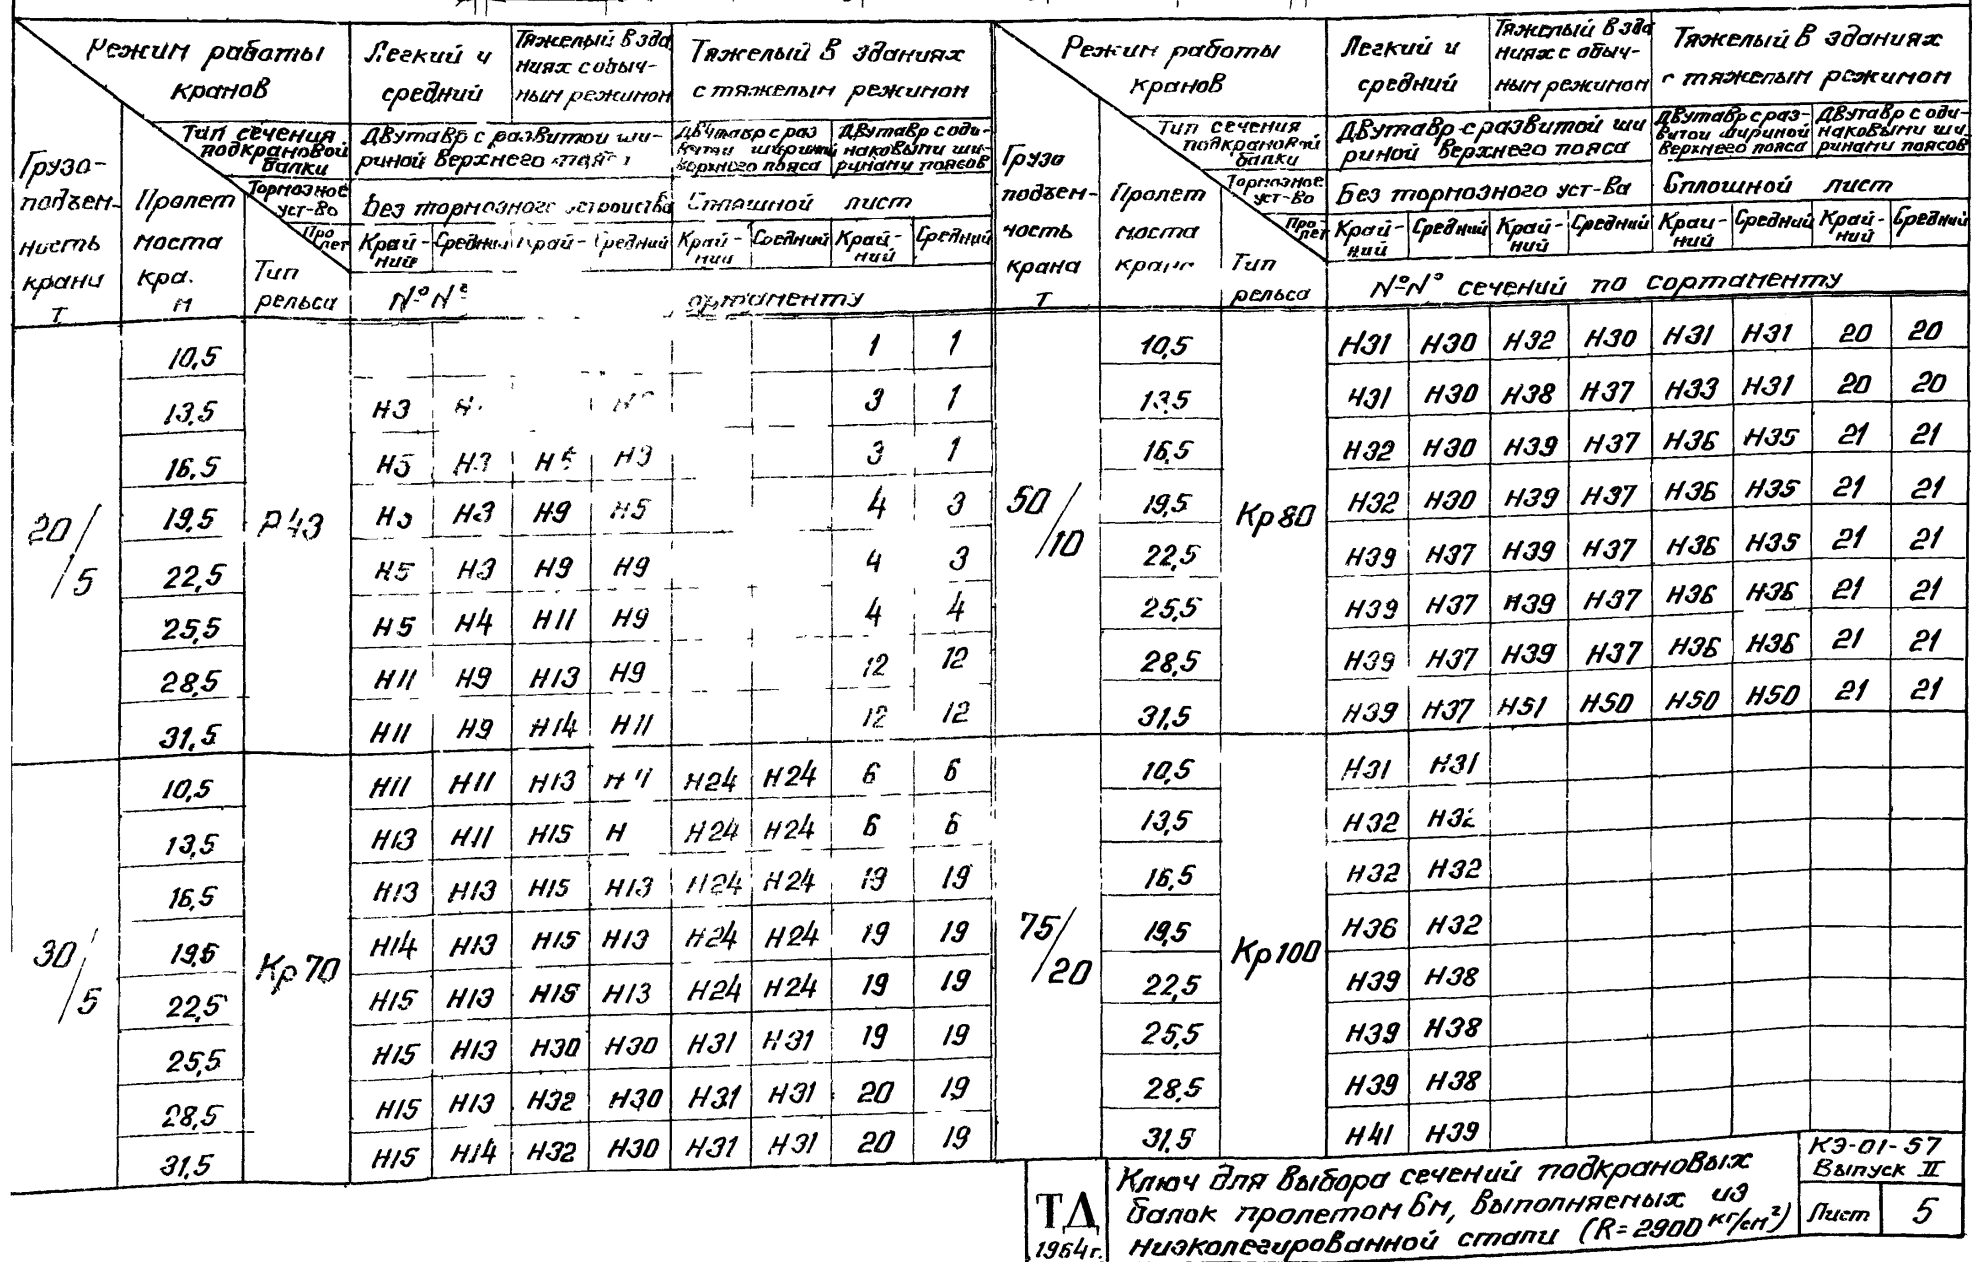 Режим работы кранов | Легкий и средний | Тяжелый в зданиях с обычным режимом | Тяжелый в зданиях с тяжелым режимом
Тип сечения подкрановой балки | Двутавр с развитой шириной верхнего | Двутавр с раз ширини верхнего пояса | Двутавр с одинаковыми ширинами поясов
Тормозное уст-во | Без тормозного устройства | Сплошной лист
Грузоподъемность крана Т | Пролет моста кра. м | Тип рельса | Пролет | Крайний | Средний | Край- | Средний | Крайний | Средний | Крайний | Средний
№№ сортаменту
20/5 | Р43
10,5 | 1 | 1
13,5 | Н3 | 3 | 1
16,5 | Н5 | Н3 | Н5 | Н3 | 3 | 1
19,5 | Н3 | Н9 | Н5 | 4 | 3
22,5 | Н5 | Н3 | Н9 | Н9 | 4 | 3
25,5 | Н5 | Н4 | Н11 | Н9 | 4 | 4
28,5 | Н11 | Н9 | Н13 | Н9 | 12 | 12
31,5 | Н11 | Н9 | Н14 | Н11 | 12 | 12
30/5 | Кр70
10,5 | Н11 | Н11 | Н13 | Н24 | Н24 | 6 | 6
13,5 | Н13 | Н11 | Н15 | Н | Н24 | Н24 | 6 | 6
16,5 | Н13 | Н13 | Н15 | Н13 | Н24 | Н24 | 19 | 19
19,5 | Н14 | Н13 | Н15 | Н13 | Н24 | Н24 | 19 | 19
22,5 | Н15 | Н13 | Н15 | Н13 | Н24 | Н24 | 19 | 19
25,5 | Н15 | Н13 | Н30 | Н30 | Н31 | Н31 | 19 | 19
28,5 | Н15 | Н13 | Н32 | Н30 | Н31 | Н31 | 20 | 19
31,5 | Н15 | Н14 | Н32 | Н30 | Н31 | Н31 | 20 | 19
Режим работы кранов | Легкий и средний | Тяжелый в зданиях с обычным режимом | Тяжелый в зданиях с тяжелым режимом
Тип сечения подкрановой балки | Двутавр с развитой шириной верхнего пояса | Двутавр с развитой шириной верхнего пояса | Двутавр с одинаковыми ширинами поясов
Тормозное уст-во | Без тормозного уст-ва | Сплошной лист
Грузоподъемность крана Т | Пролет моста крана | Тип рельса | Пролет | Крайний | Средний | Крайний | Средний | Крайний | Средний | Крайний | Средний
№№ сечений по сортаменту
50/10 | Кр80
10,5 | Н31 | Н30 | Н32 | Н30 | Н31 | Н31 | 20 | 20
13,5 | Н31 | Н30 | Н38 | Н37 | Н33 | Н31 | 20 | 20
16,5 | Н32 | Н30 | Н39 | Н37 | Н36 | Н35 | 21 | 21
19,5 | Н32 | Н30 | Н39 | Н37 | Н36 | Н35 | 21 | 21
22,5 | Н39 | Н37 | Н39 | Н37 | Н36 | Н35 | 21 | 21
25,5 | Н39 | Н37 | Н39 | Н37 | Н36 | Н36 | 21 | 21
28,5 | Н39 | Н37 | Н39 | Н37 | Н36 | Н36 | 21 | 21
31,5 | Н39 | Н37 | Н51 | Н50 | Н50 | Н50 | 21 | 21
75/20 | Кр100
10,5 | Н31 | Н31
13,5 | Н32 | Н32
16,5 | Н32 | Н32
19,5 | Н36 | Н32
22,5 | Н39 | Н38
25,5 | Н39 | Н38
28,5 | Н39 | Н38
31,5 | Н41 | Н39
ТД
1964г.
Ключ для выбора сечений подкрановых
балок пролетом 6м, выполняемых из
низколегированной стали (R=2900 кг/см²)
КЭ-01-57
Выпуск II
Лист 5